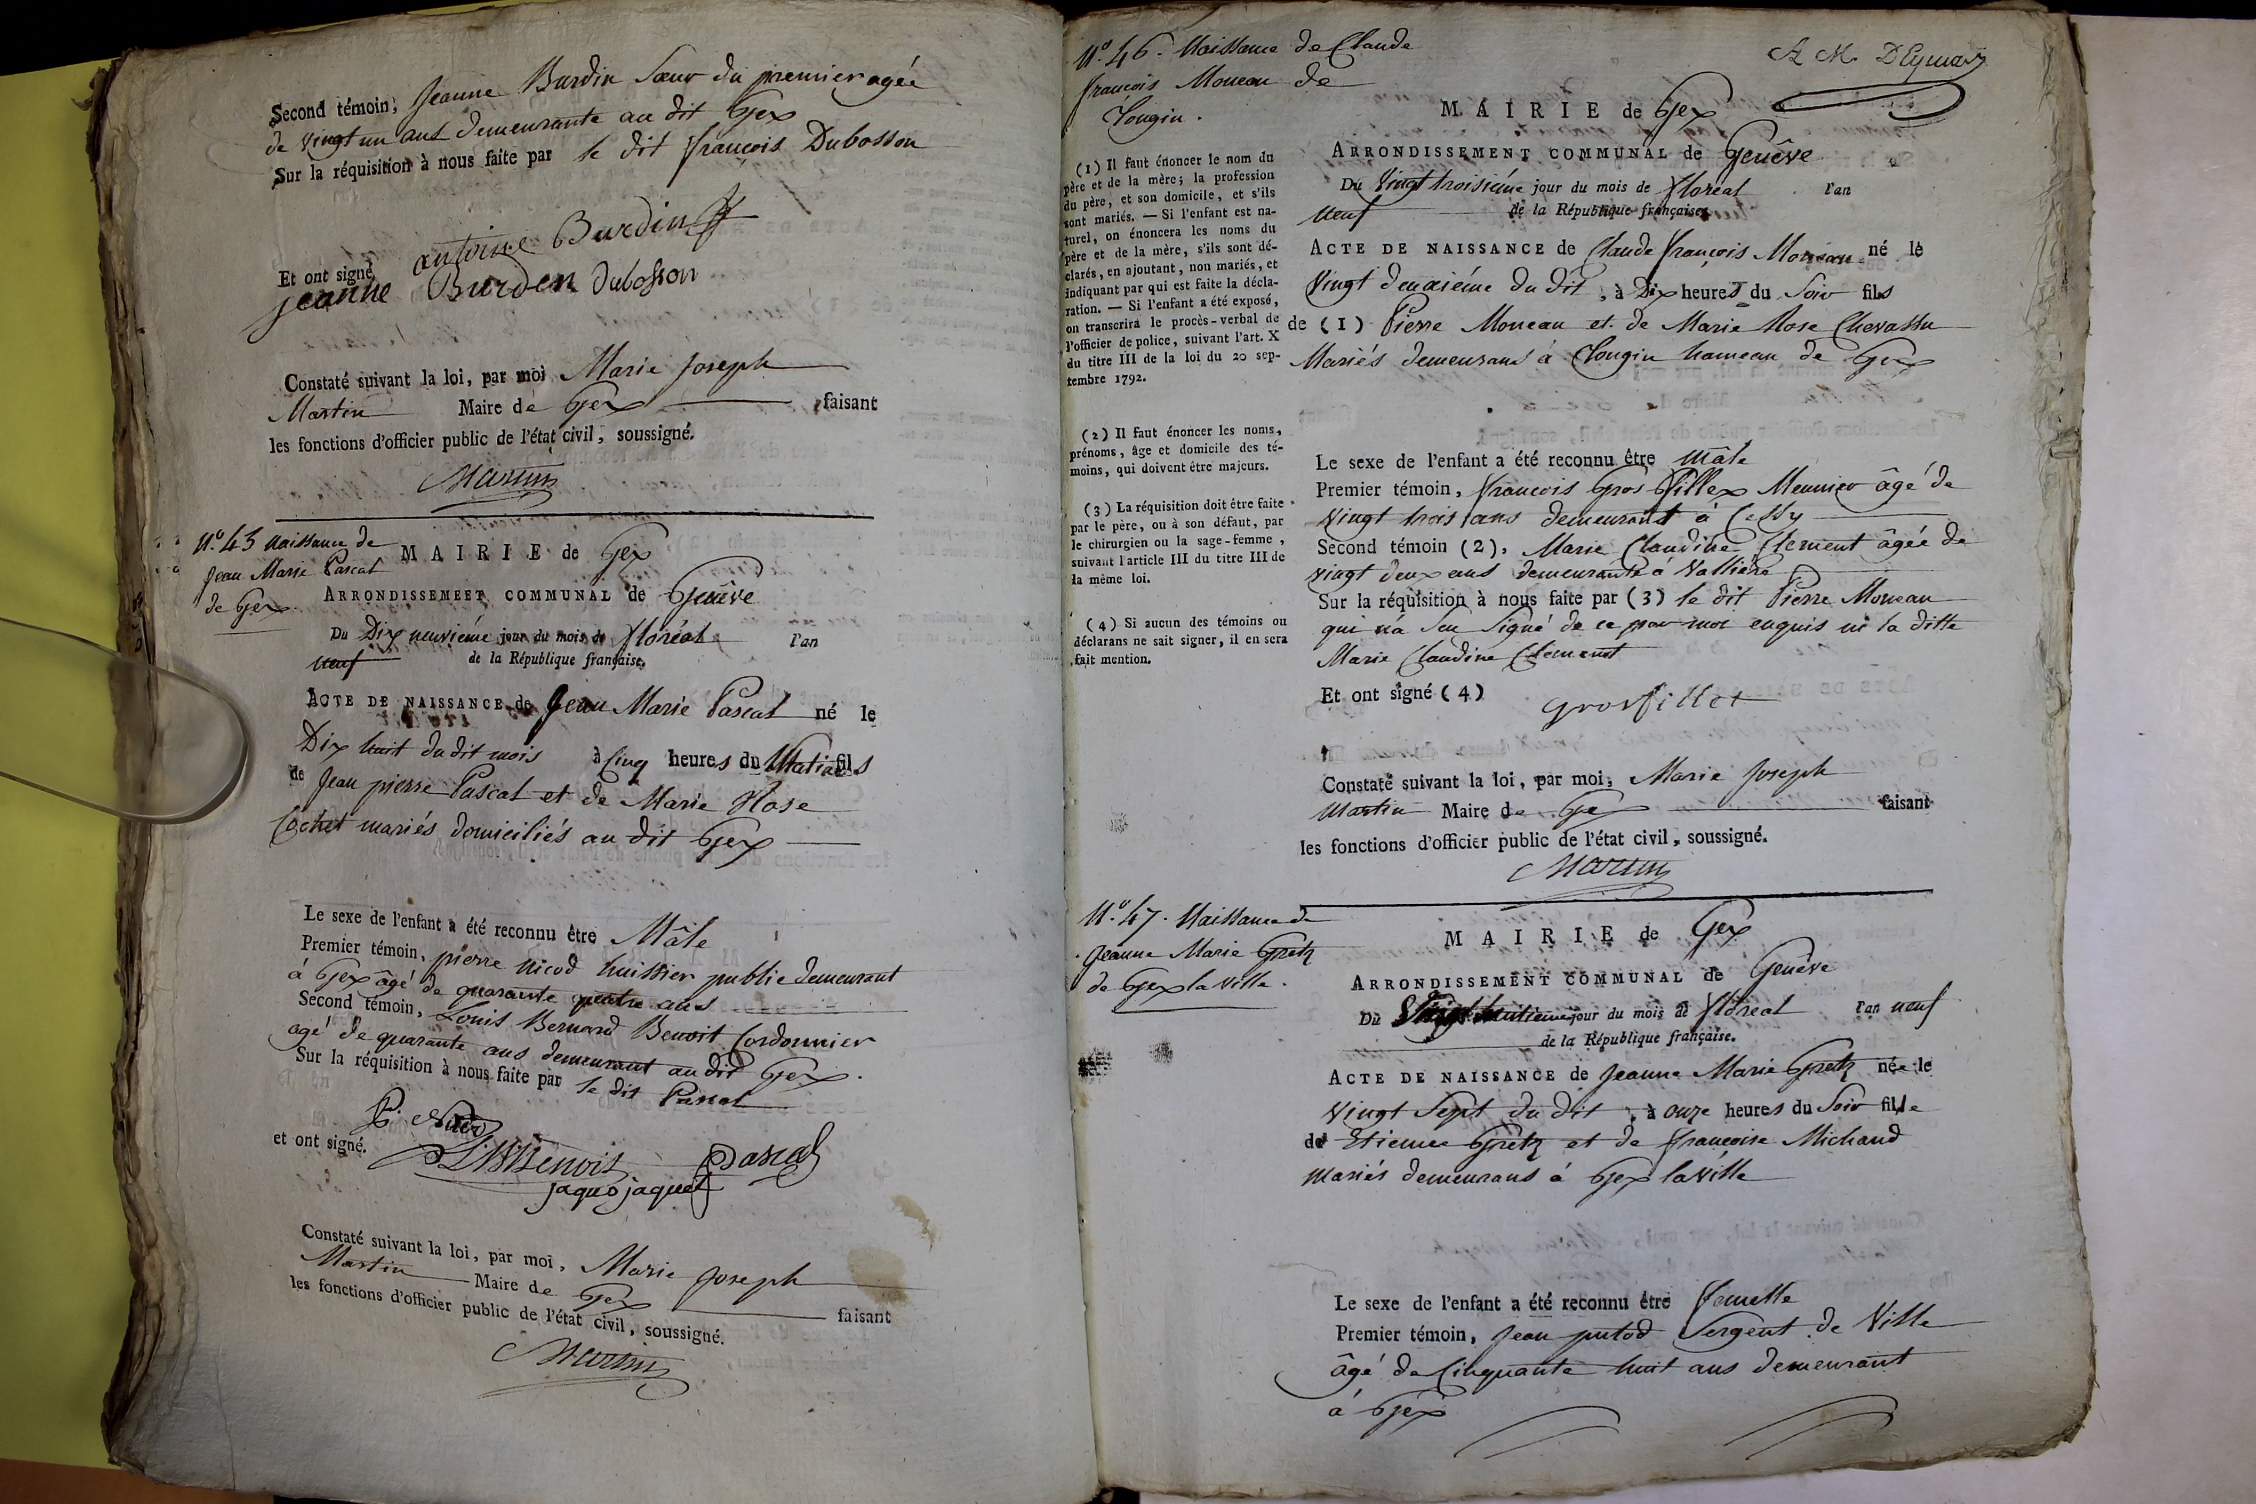 Second témoin, Jeanne Burdin Sœur du premier agée
de vingt un ans demeurante au dit Gex
Sur la réquisition à nous faite par le dit françois Dubosson
antoine Burdin
Et ont signé,
jeanne Burden Dubosson
Constaté suivant la loi, par moi Marie Joseph
Martin Maire de Gex faisant
les fonctions d'officier public de l'état civil, soussigné.
Martin
N.º 43 Naissance de
Jean Marie Pascal
de Gex.
MAIRIE de Gex
ARRONDISSEMEET COMMUNAL de Genêve
Du Dix neuviéme jour du mois de floréal l'an
neuf de la République française.
ACTE DE NAISSANCE de Jean Marie Pascal né le
Dix huit du dit mois à Cinq heures du Matin fils
de Jean pierre Pascal et de Marie Rose
Cochet mariés domiciliés au dit Gex
Le sexe de l'enfant a été reconnu être Mâle
Premier témoin, pierre Nicod huissier public demeurant
à Gex âgé de quarante quatre ans
Second témoin, Louis Bernard Benoit Cordonnier
agé de quarante ans demeurant au dit Gex.
Sur la réquisition à nous faite par le dit Pascal
P. Nicod
et ont signé.
L B Benoit Pascal
jaquo jaquet
Constaté suivant la loi, par moi, Marie Joseph
Martin Maire de Gex faisant
les fonctions d'officier public de l'état civil, soussigné.
Martin
N.º 46. Naissance de Claude
françois Moneau de
Tougin.
A M. DEymar
(1) Il faut énoncer le nom du
père et de la mère; la profession
du père, et son domicile, et s'ils
sont mariés. — Si l'enfant est na-
turel, on énoncera les noms du
père et de la mère, s'ils sont dé-
clarés, en ajoutant, non mariés, et
indiquant par qui est faite la décla-
ration. — Si l'enfant a été exposé,
on transcrira le procès-verbal de
l'officier de police, suivant l'art. X
du titre III de la loi du 20 sep-
tembre 1792.
(2) Il faut énoncer les noms,
prénoms, âge et domicile des té-
moins, qui doivent être majeurs.
(3) La réquisition doit être faite
par le père, ou à son défaut, par
le chirurgien ou la sage-femme,
suivant l'article III du titre III de
la même loi.
(4) Si aucun des témoins ou
déclarans ne sait signer, il en sera
fait mention.
MAIRIE de Gex
ARRONDISSEMENT COMMUNAL de Genêve
Du Vingt troisiéme jour du mois de floréal l'an
neuf de la République française.
ACTE DE NAISSANCE de Claude françois Moneau né le
Vingt deuxiéme du dit, à Dix heures du Soir fils
de (1) Pierre Moneau et de Marie Rose Chevassu
Mariés demeurans à Tougin hameau de Gex
Le sexe de l'enfant a été reconnu être Mâle
Premier témoin, françois Gros fillex Meunier âgé de
vingt trois ans demeurant à Cessy
Second témoin (2), Marie Claudine Clement âgée de
vingt deux ans demeurante á Vallière
Sur la réquisition à nous faite par (3) le dit Pierre Moneau
qui n'a Seu Signé de ce par moi enquis ni la ditte
Marie Claudine Clement
Et ont signé (4)
grosfillet
Constaté suivant la loi, par moi, Marie Joseph
Martin Maire de Gex faisant
les fonctions d'officier public de l'état civil, soussigné.
Martin
N.º 47. Naissance de
Jeanne Marie Gretz
de Gex la ville.
MAIRIE de Gex
ARRONDISSEMENT COMMUNAL de Genêve
Du Vingt huitieme jour du mois de floreal l'an neuf
de la République française.
ACTE DE NAISSANCE de Jeanne Marie Gretz née le
Vingt Sept du dit, à onze heures du Soir fille
de Etienne Gretz et de françoise Michaud
mariés demeurans á Gex la Ville
Le sexe de l'enfant a été reconnu être femelle
Premier témoin, Jean putod Sergent de Ville
âgé de Cinquante huit ans demeurant
á Gex